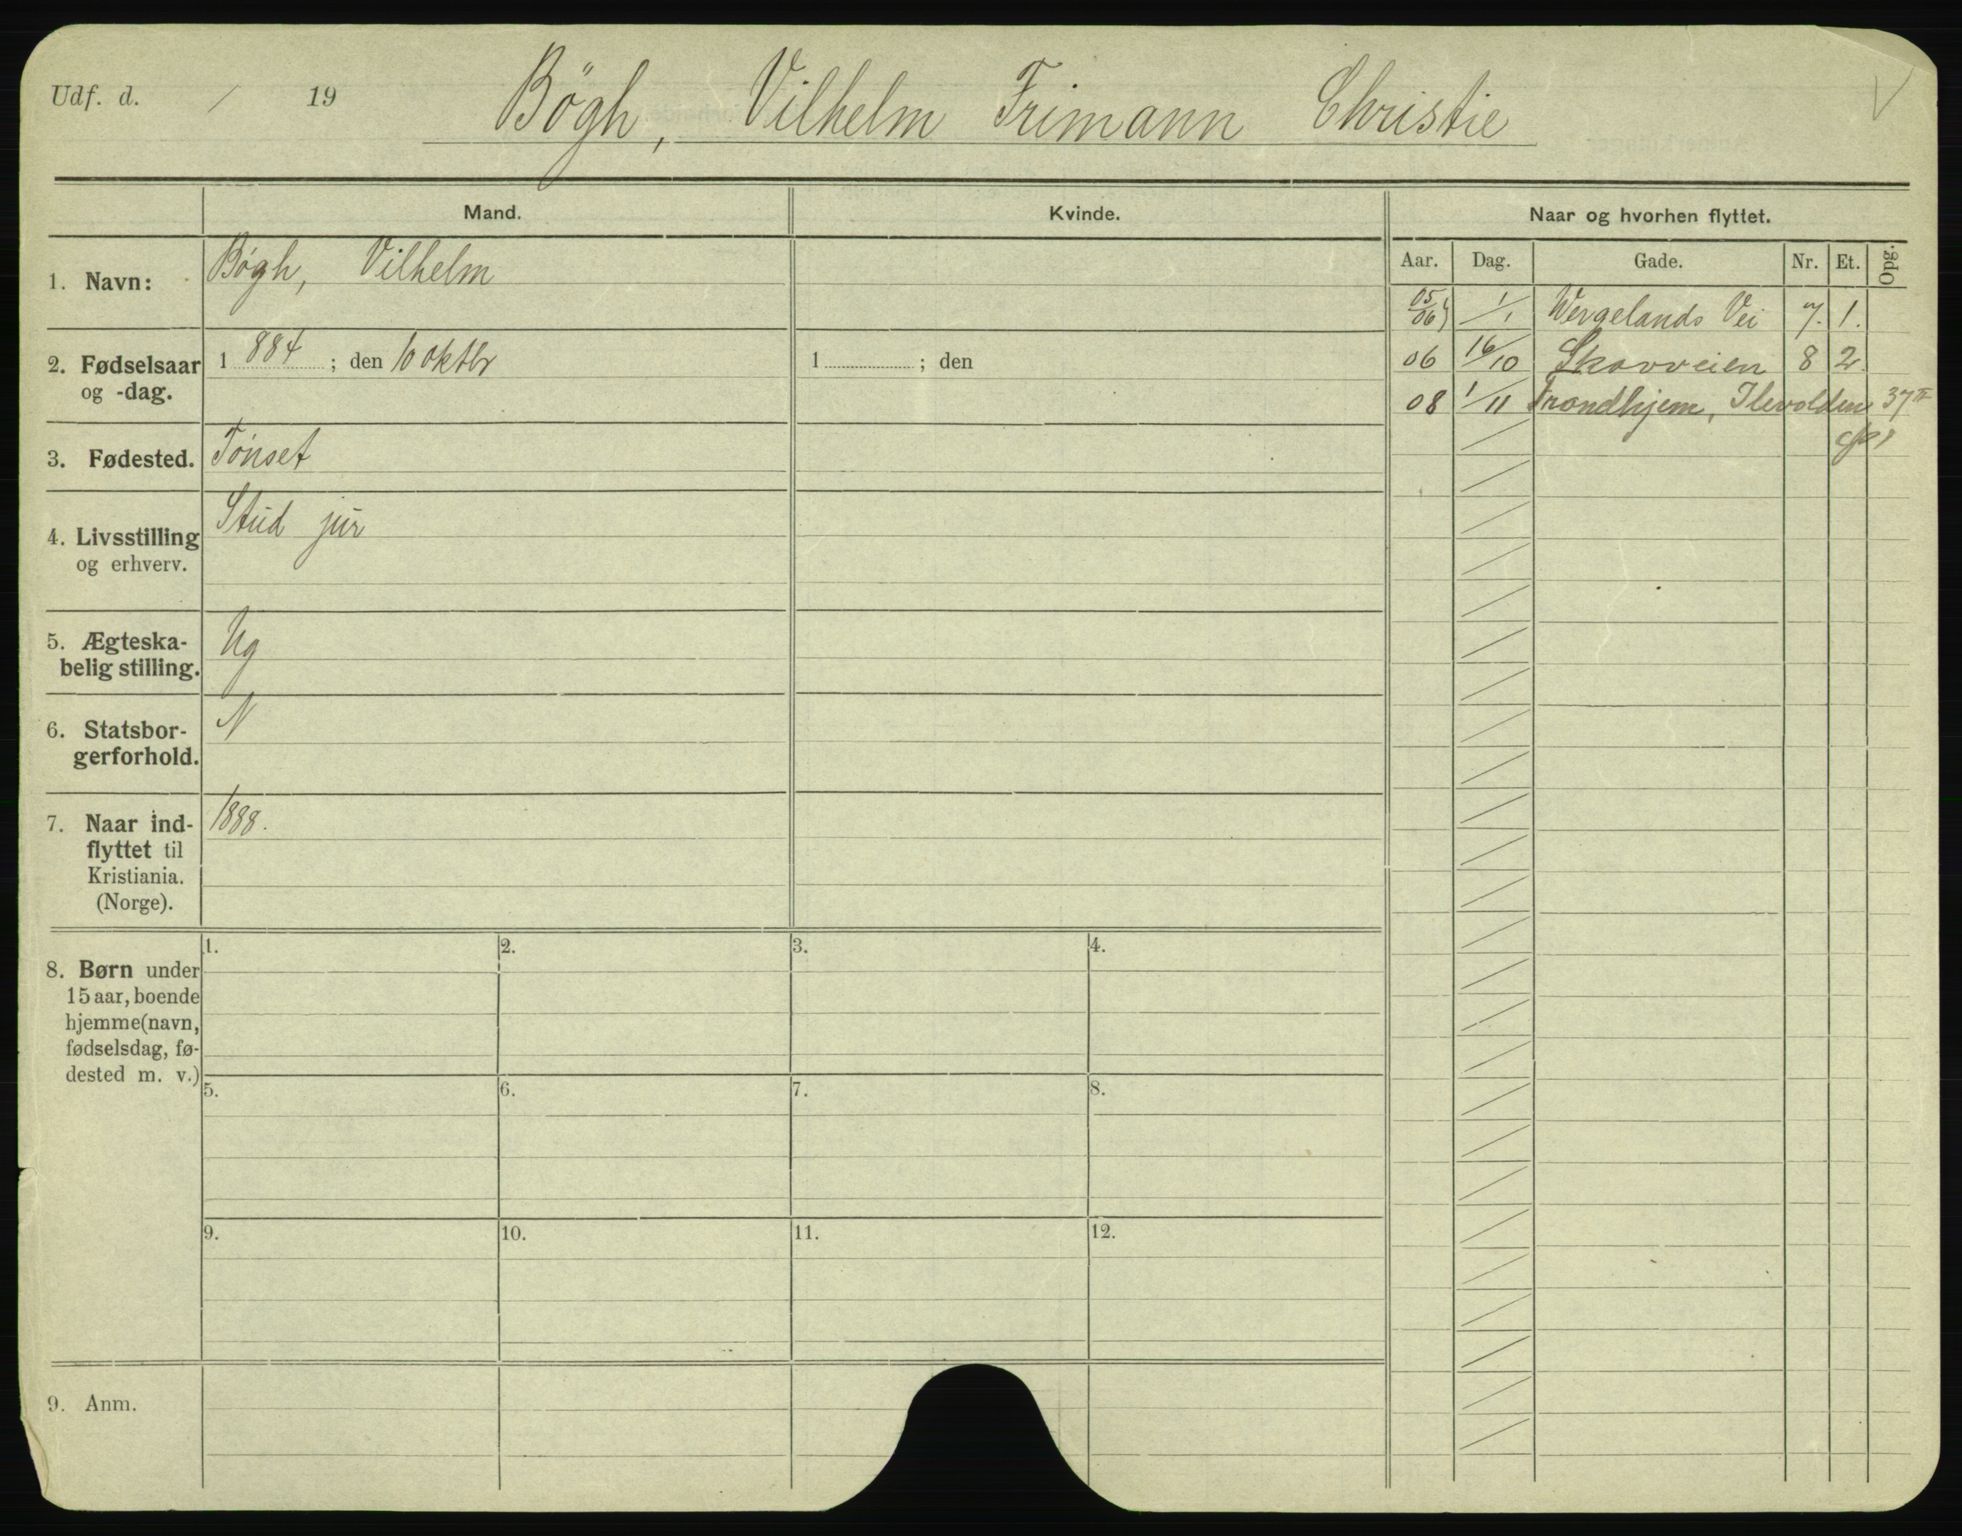 Udf. d. / 19
Bögh, Vilhelm Frimann Christie
Mand. Kvinde. Naar og hvorhen flyttet.
Aar. Dag. Gade. Nr. Et. Opg.
1. Navn: Bøgh, Vilhelm
05/06 1/1 Wergelands Vei 7. 1.
2. Fødselsaar og -dag. 1884; den 10 oktbr 1 ; den
06 16/10 Skovveien 8 2.
08 1/11 Trondhjem, Ilevolden 37 II
3. Fødested. Tönset
4. Livsstilling og erhverv. Stud jur
5. Ægteska-
belig stilling. Ug
6. Statsbor-
gerforhold. N
7. Naar ind-
flyttet til
Kristiania.
(Norge). 1888.
8. Børn under
15 aar, boende
hjemme (navn,
fødselsdag, fø-
dested m. v.)
1. 2. 3. 4.
5. 6. 7. 8.
9. 10. 11. 12.
9. Anm.